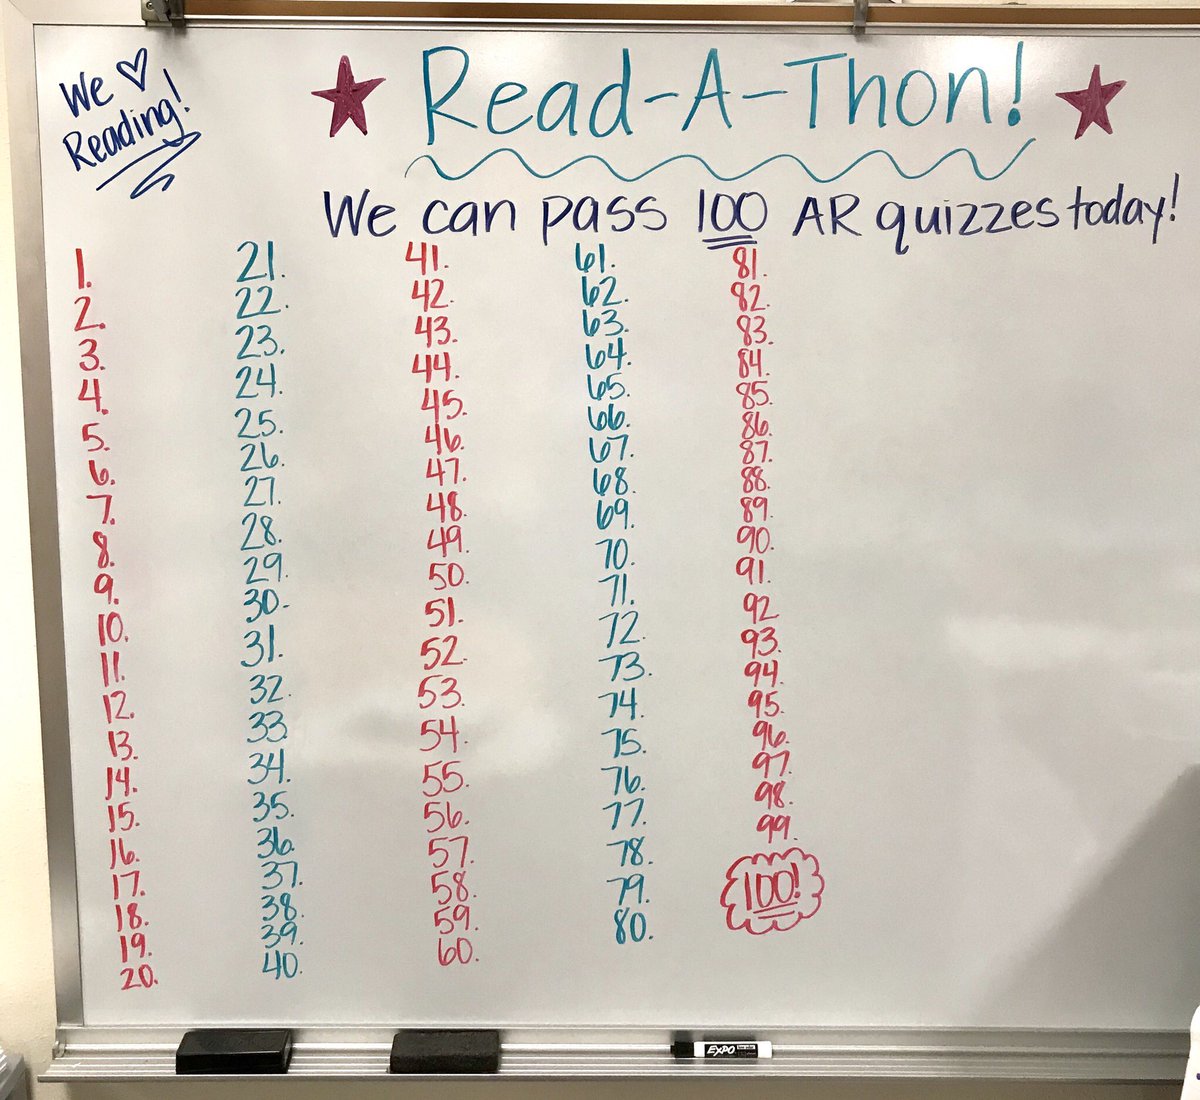 We ♡
Reading!
Read-A-Thon!
We can pass 100 AR quizzes today!
1.
2.
3.
4.
5.
6.
7.
8.
9.
10.
11.
12.
13.
14.
15.
16.
17.
18.
19.
20.
21.
22.
23.
24.
25.
26.
27.
28.
29.
30.
31.
32.
33.
34.
35.
36.
37.
38.
39.
40.
41.
42.
43.
44.
45.
46.
47.
48.
49.
50.
51.
52.
53.
54.
55.
56.
57.
58.
59.
60.
61.
62.
63.
64.
65.
66.
67.
68.
69.
70.
71.
72.
73.
74.
75.
76.
77.
78.
79.
80.
81.
82.
83.
84.
85.
86.
87.
88.
89.
90.
91.
92.
93.
94.
95.
96.
97.
98.
99.
100!
EXPO